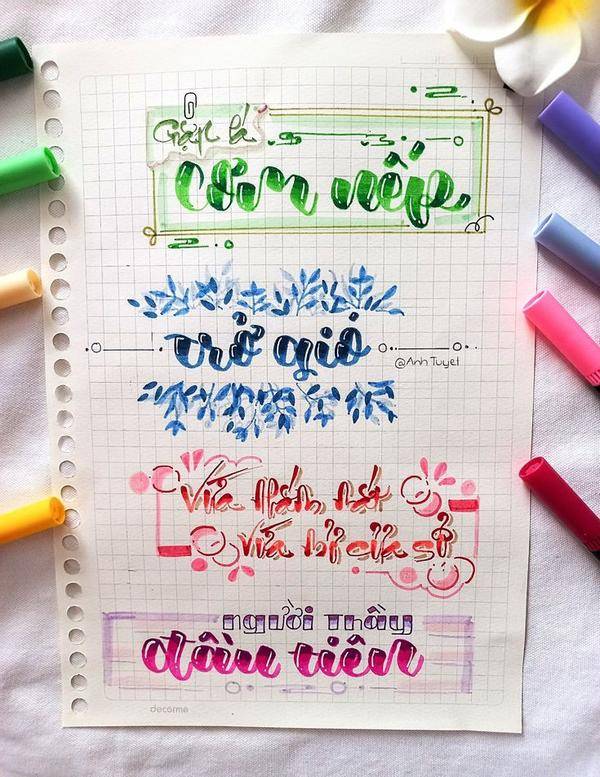 Gặp lá
cơm nếp
trở gió
@Anh Tuyet
Vừa nhắm mắt
Vừa mở cửa sổ
Người Thầy
đầu tiên